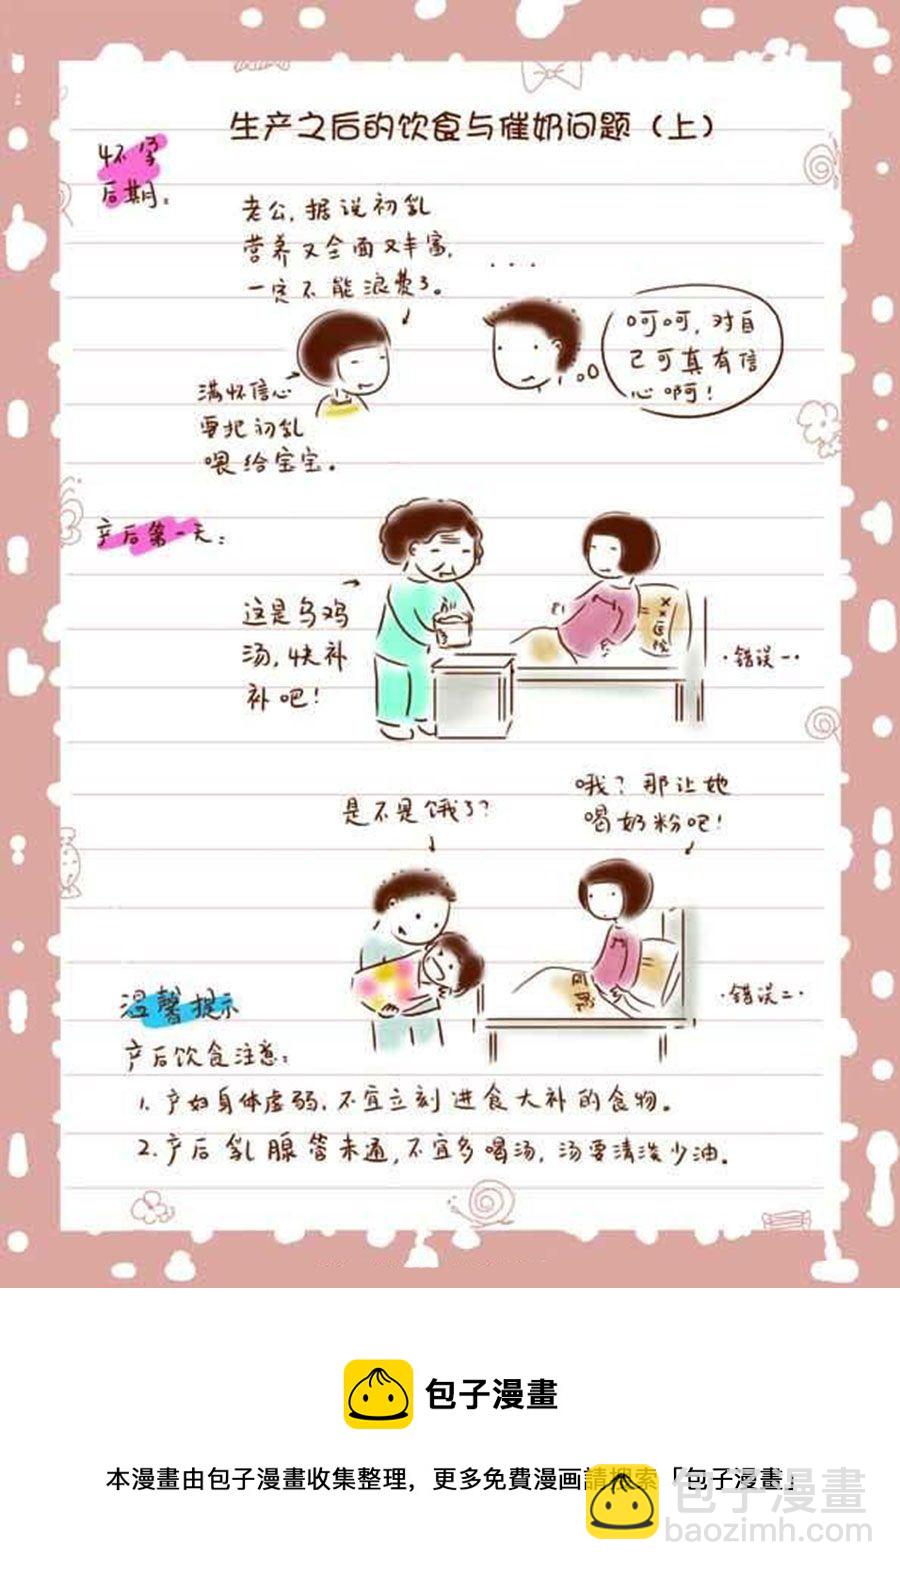 生产之后的饮食与催奶问题（上）
怀孕
后期：
老公，据说初乳
营养又全面又丰富，
一定不能浪费了。
...
呵呵，对自
己可真有信
心啊！
满怀信心
要把初乳
喂给宝宝。
产后第一天：
这是乌鸡
汤，快补
补吧！
××医院
·错误一·
是不是饿了？
哦？那让她
喝奶粉吧！
·错误二·
温馨提示
产后饮食注意：
1. 产妇身体虚弱，不宜立刻进食大补的食物。
2. 产后乳腺管未通，不宜多喝汤，汤要清淡少油。
包子漫畫
本漫畫由包子漫畫收集整理，更多免費漫画請搜索「包子漫畫」
包子漫畫
baozimh.com